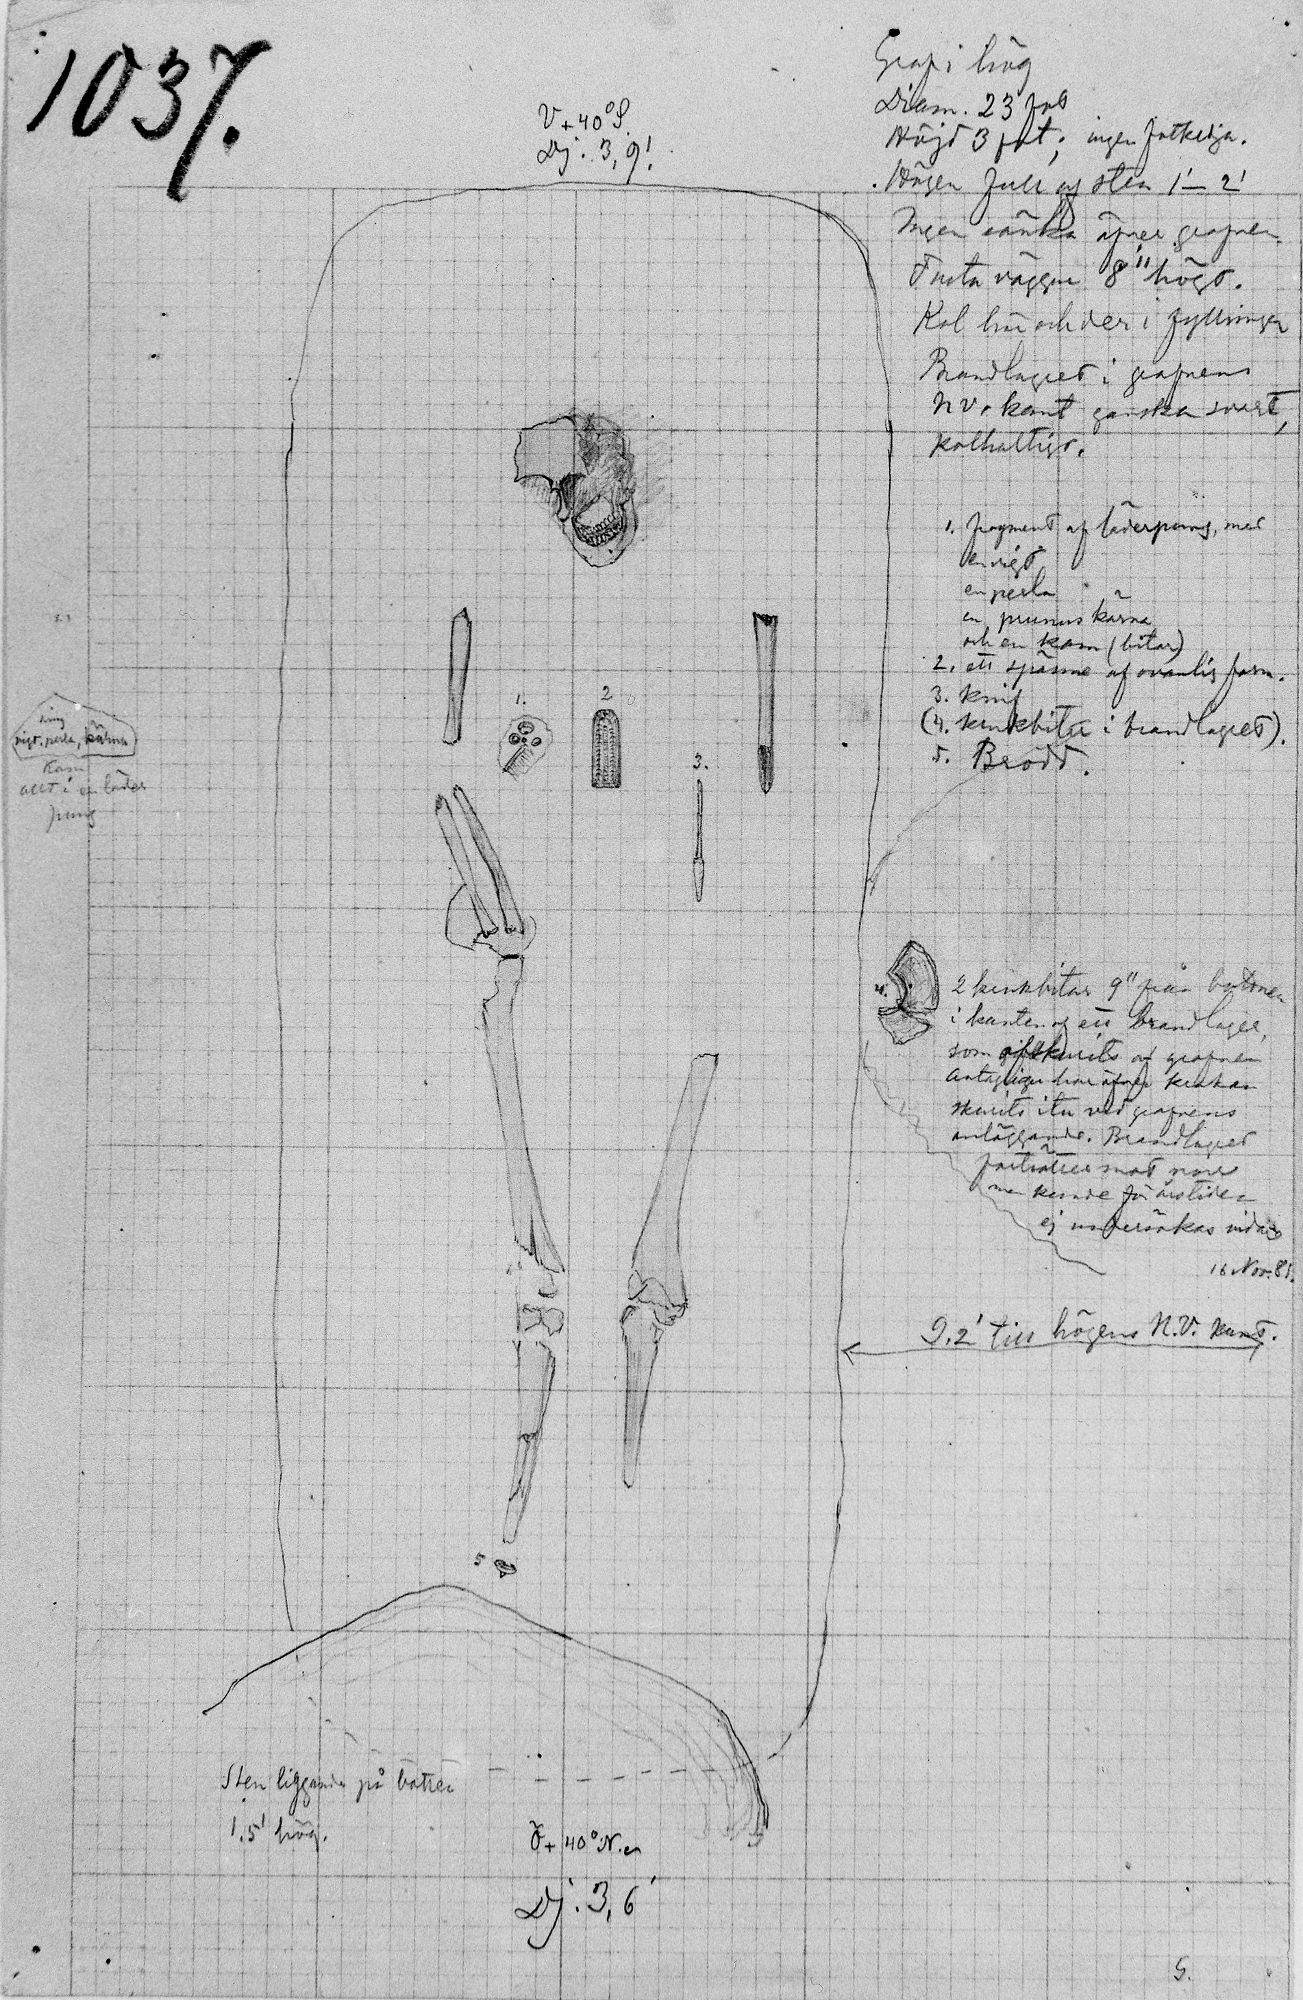 1037.
V + 40° S.
Dj. 3,9!
Graf i hög
Diam. 23 fot
Höjd 3 fot; ingen fotkedja.
Högen full af sten 1'–2'
Ingen sänka öfver grafven.
Fasta väggar 8" högt.
Kol här och der i fyllningen
Brandlagret i grafvens
NV. kant ganska svart,
kolhaltigt.
1. fragment af läderpung, med
en vigt
en perla
en prunus kärna
och en kam (bitar)
2. ett spänne af ovanlig form.
3. Knif
(4. krukbitar i brandlagret).
5. Brodd.
ring
vigt, perla, kärna
Kam
allt i en läder
pung
1.
2
3.
4.
2 krukbitar 9" från bottnen
i kanten af ett brandlager,
som afskurits af grafven
Antagligen har äfven krukan
skurits itu vid grafvens
anläggande. Brandlagret
fortsätter mot norr
men kunde för årstiden
ej undersökas vidare
16 Nov. 81.
9.2' till högens N.V. kant.
5
Sten liggande på botten
1.5' hög.
Ö + 40° N.
Dj. 3,6'
S.